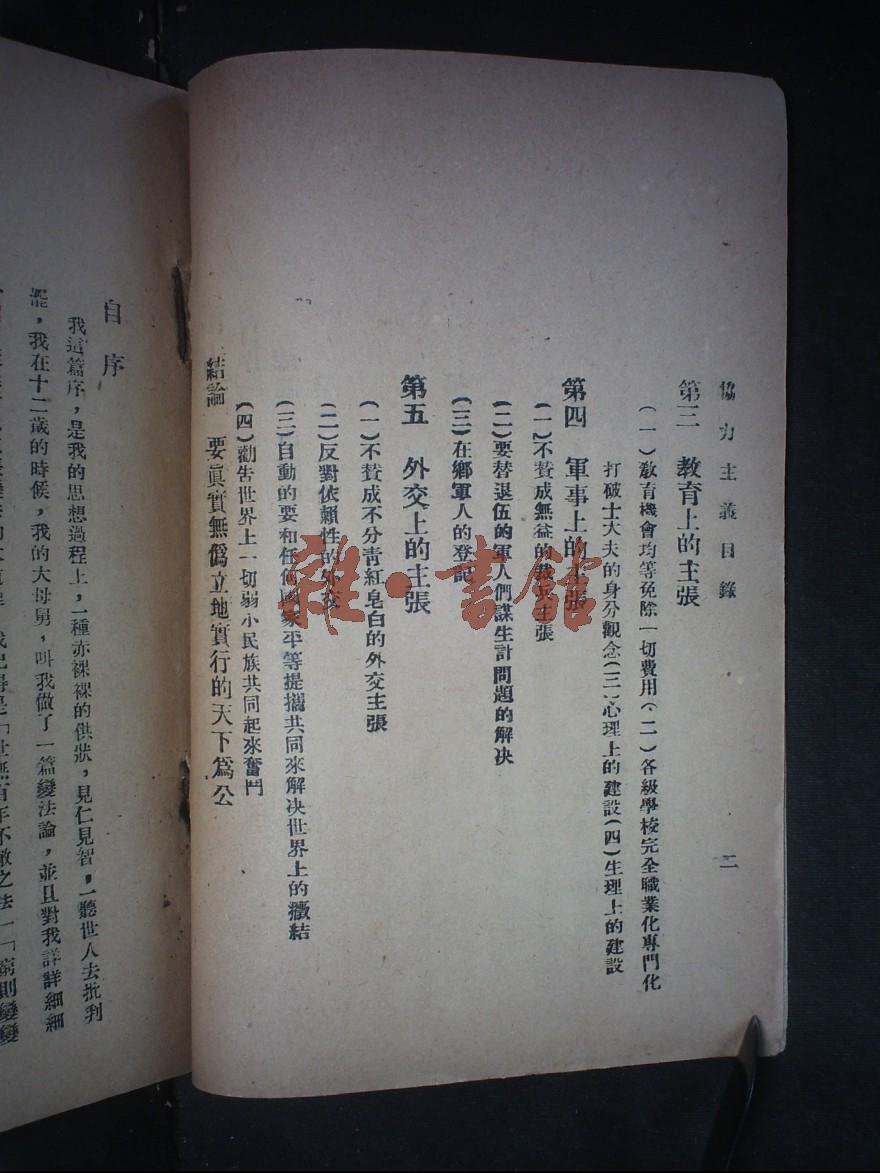 協力主義目錄
二
第三 教育上的主張
(一)教育機會均等免除一切費用(二)各級學校完全職業化專門化
打破士大夫的身分觀念(三)心理上的建設(四)生理上的建設
第四 軍事上的主張
(一)不贊成無益的裁兵主張
(二)要替退伍的軍人們謀生計問題的解決
(三)在鄉軍人的登記
第五 外交上的主張
(一)不贊成不分青紅皂白的外交主張
(二)反對依賴性的外交
(三)自動的要和任何國家平等提攜共同來解決世界上的癥結
(四)勸告世界上一切弱小民族共同起來奮鬥
結論 要眞實無僞立地實行的天下爲公
自序
我這篇序,是我的思想過程上,一種赤裸裸的供狀,見仁見智,一聽世人去批判
罷,我在十二歲的時候,我的大母舅,叫我做了一篇變法論,並且對我詳詳細細
記得是「世無百年不敝之法」「窮則變變
雜·書館